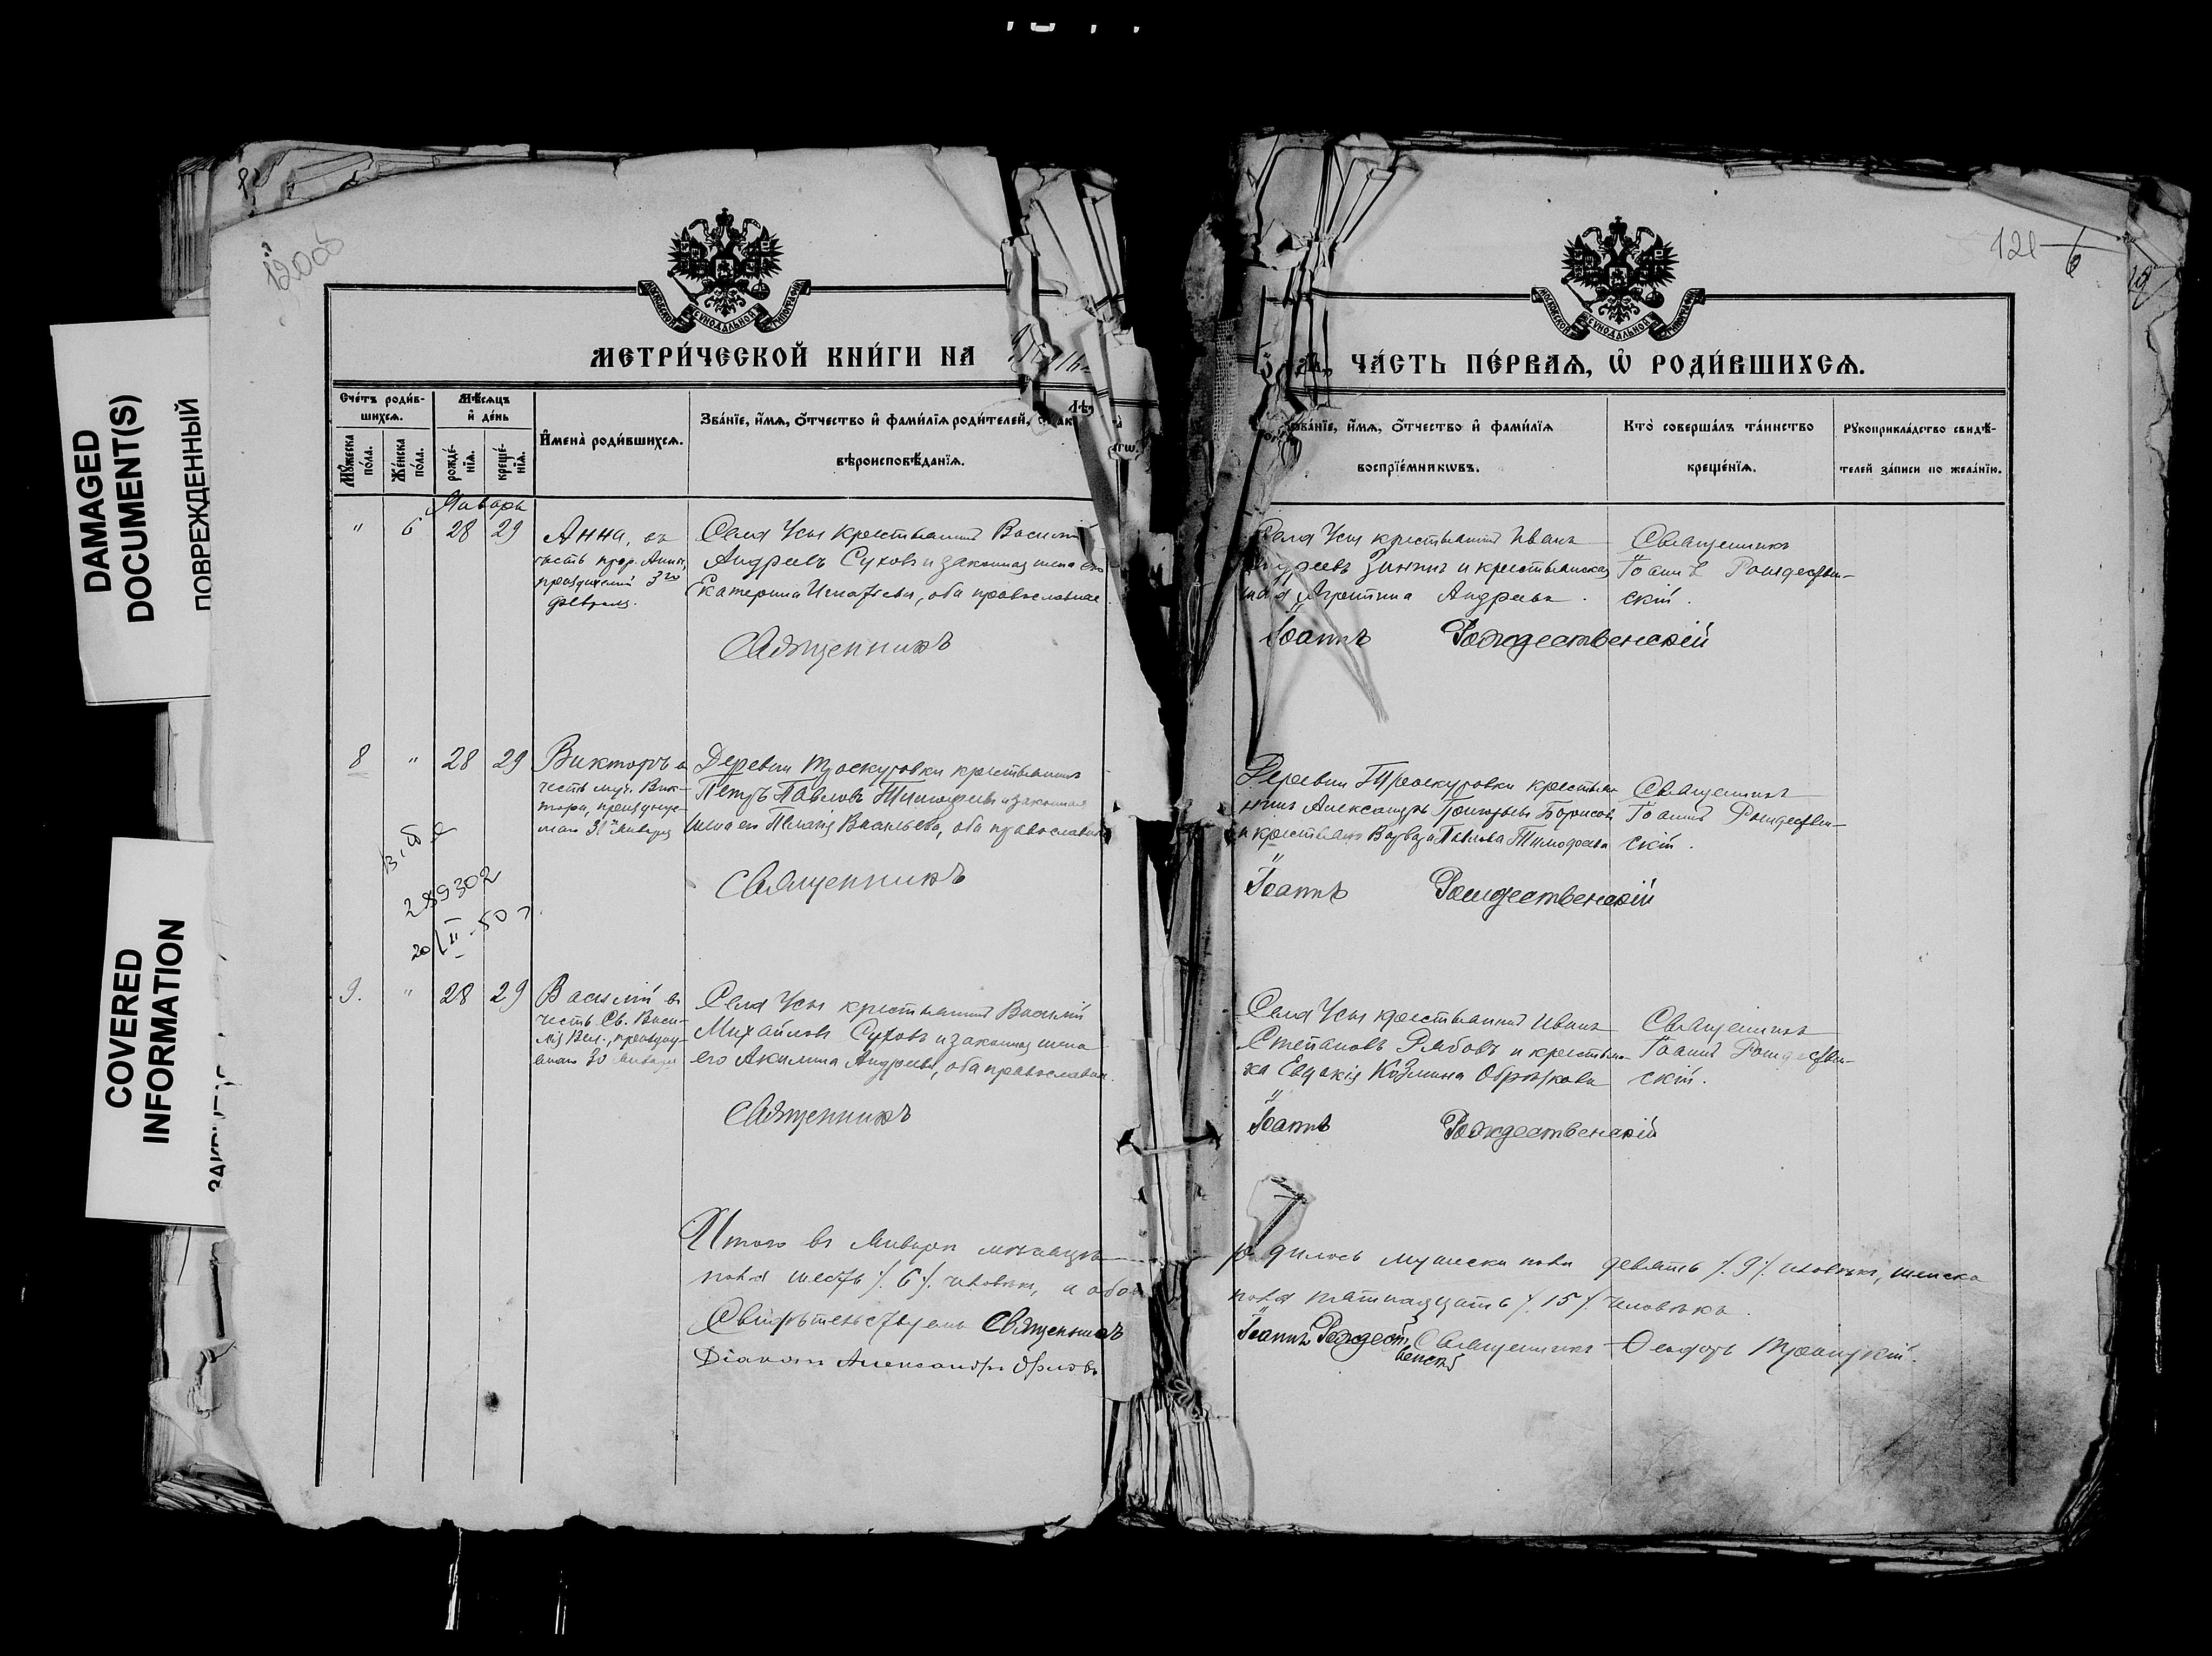 DAMAGED
DOCUMENT(S)
ПОВРЕЖДЕННЫЙ
COVERED
INFORMATION
120об
121
6
МОСКОВСКОЙ СѴНОДАЛЬНОЙ ТИПОГРАФІИ
МЕТРИ́ЧЕСКОЙ КНИ́ГИ НА
Сче́тъ роди́в-
шихсѧ.
Мѣ́сѧцъ
и҆ де́нь
Мꙋ́жеска
по́ла.
Же́нска
по́ла.
рожде́-
нїѧ.
креще́-
нїѧ.
И҆мена̀ роди́вшихсѧ.
Зва́нїе, и҆́мѧ, ѻ҆́тчество и҆ фами́лїѧ роди́телей,
вѣроисповѣ́данїѧ.
Январь
" 6 28 29
Анна, въ
честь прор. Анны,
празднуемой 3го
февраля.
Села Усы крестьянинъ Василій
Андреевъ Суховъ и законная жена его
Екатерина Игнатьева, оба православные.
Священникъ
8 " 28 29
Викторъ въ
честь муч. Вик-
тора, празднуе-
маго 31 января
Деревни Проскуровки крестьянинъ
Петръ Павловъ Тимофеевъ и законная
жена его Васильева, оба православные
Священникъ
289302
20/II-50 г
9. " 28 29
Василій въ
честь Св. Васи-
лія Вел., праздну-
емаго 30 января
Села Усы крестьянинъ Василій
Михайловъ Суховъ и законная жена
его Акилина Андреева, оба православные.
Священникъ
Итого въ Январѣ мѣсяцѣ
пола шесть /. 6 /. человѣкъ, а обоего
Свидѣтельствуемъ Священникъ
Діаконъ Александръ Орловъ
МОСКОВСКОЙ СѴНОДАЛЬНОЙ ТИПОГРАФІИ
ЧА́СТЬ ПЕ́РВАѦ, Ѡ҆ РОДИ́ВШИХСѦ.
Зва́нїе, и҆́мѧ, ѻ҆́тчество и҆ фами́лїѧ
воспрїе́мникѡвъ.
Кто̀ соверша́лъ та́инство
креще́нїѧ.
Рꙋкоприкла́дство свидѣ́-
телей за́писи по жела́нїю.
Села Усы крестьянинъ Иванъ
Андреевъ Зининъ и крестьянская
Андреева.
Священникъ
Іоаннъ Рождествен-
скій.
Іоаннъ Рождественскій
Деревни Проскуровки крестья-
нинъ Александръ Григорьевъ Борисовъ
и крестьянка Варвара Павлова Тимофеева
Священникъ
Іоаннъ Рождествен-
скій.
Іоаннъ Рождественскій
Села Усы крестьянинъ Иванъ
Степановъ Рябовъ и крестьян-
ка Евдокія Козмина Обрѣзкова
Священникъ
Іоаннъ Рождествен-
скій.
Іоаннъ Рождественскій
родилось мужеска пола девять /. 9 /. человѣкъ, женска
пола пятнадцать /. 15 /. человѣкъ.
Іоаннъ Рождест-
венскій
Священникъ Ѳеодоръ Троицкій.